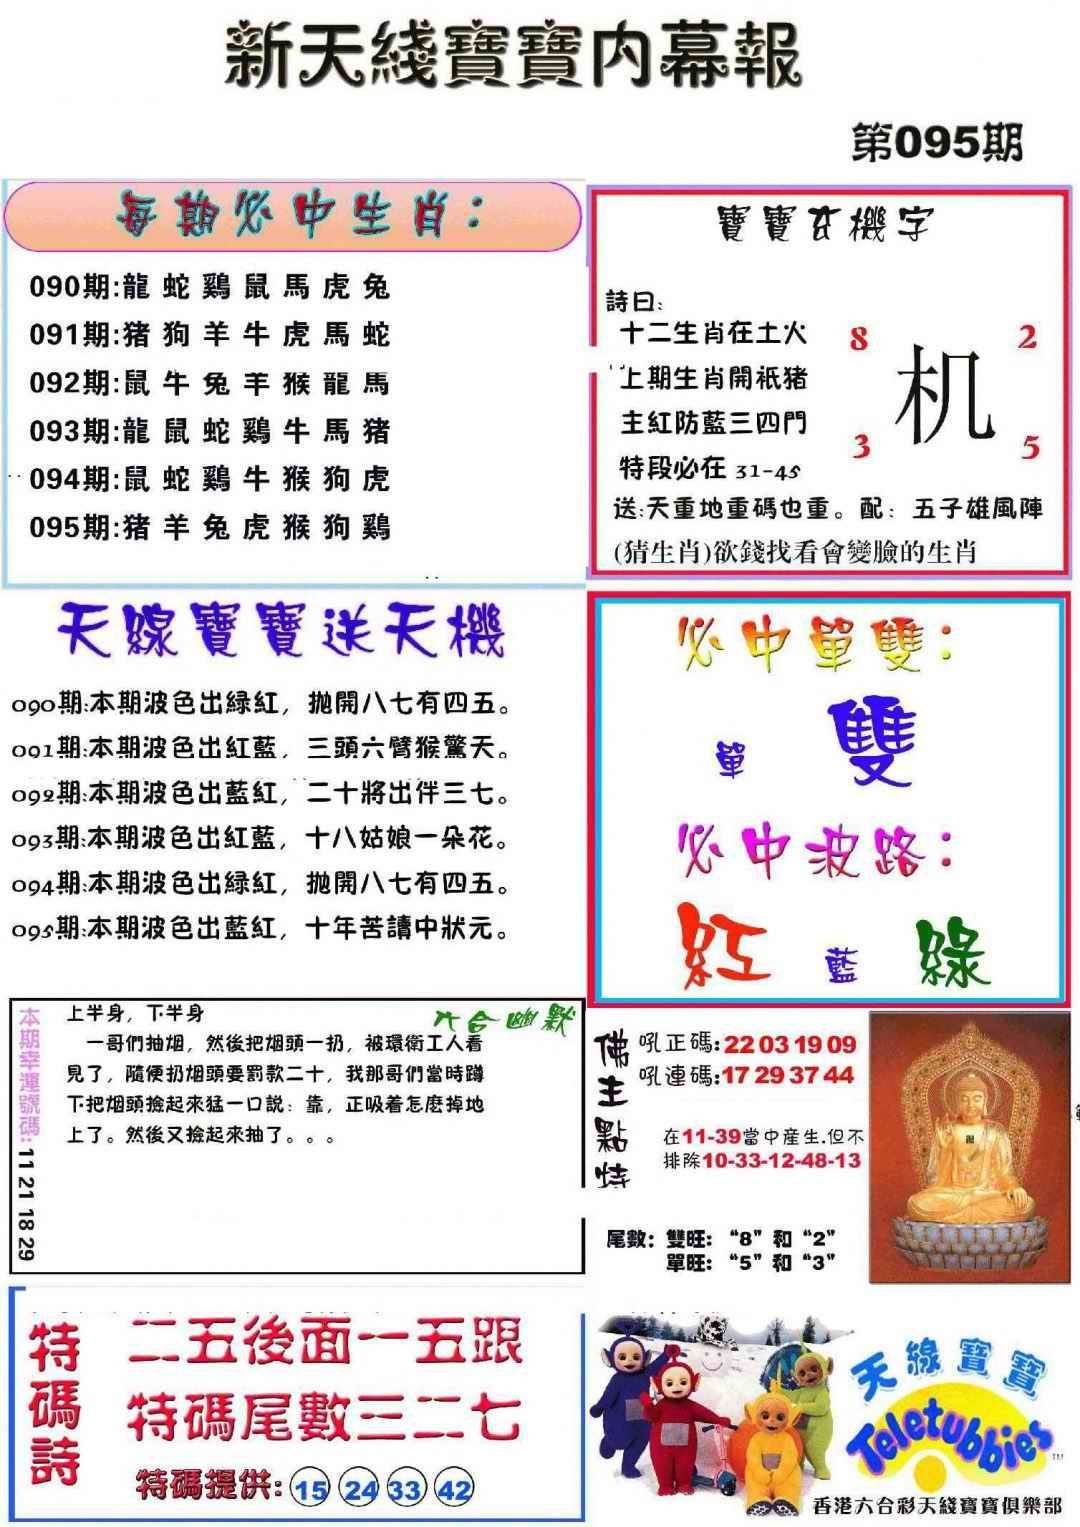 新天綫寶寶内幕報
第095期
每期必中生肖：
090期:龍蛇鷄鼠馬虎兔
091期:猪狗羊牛虎馬蛇
092期:鼠牛兔羊猴龍馬
093期:龍鼠蛇鷄牛馬猪
094期:鼠蛇鷄牛猴狗虎
095期:猪羊兔虎猴狗鷄
寶寶玄機字
詩曰:
十二生肖在土火
上期生肖開祇猪
主紅防藍三四門
特段必在 31-45
8 2
机
3 5
送:天重地重碼也重。配：五子雄風陣
(猜生肖)欲錢找看會變臉的生肖
天線寶寶送天機
090期:本期波色出緑紅，抛開八七有四五。
091期:本期波色出紅藍，三頭六臂猴驚天。
092期:本期波色出藍紅，二十將出伴三七。
093期:本期波色出紅藍，十八姑娘一朵花。
094期:本期波色出緑紅，抛開八七有四五。
095期:本期波色出藍紅，十年苦讀中狀元。
必中單雙：
單 雙
必中波路：
紅 藍 綠
本期幸運號碼: 11 21 18 29
六合幽默
上半身，下半身
一哥們抽烟，然後把烟頭一扔，被環衛工人看
見了，隨便扔烟頭要罰款二十，我那哥們當時蹲
下把烟頭撿起來猛一口說：靠，正吸着怎麽掉地
上了。然後又撿起來抽了。。。
佛主點特
吼正碼:22 03 19 09
吼連碼:17 29 37 44
在11-39當中産生.但不
排除10-33-12-48-13
尾數：雙旺：“8”和“2”
單旺：“5”和“3”
特碼詩
二五後面一五跟
特碼尾數三二七
特碼提供: 15 24 33 42
天線寶寶
Teletubbies
TM
香港六合彩天綫寶寶俱樂部